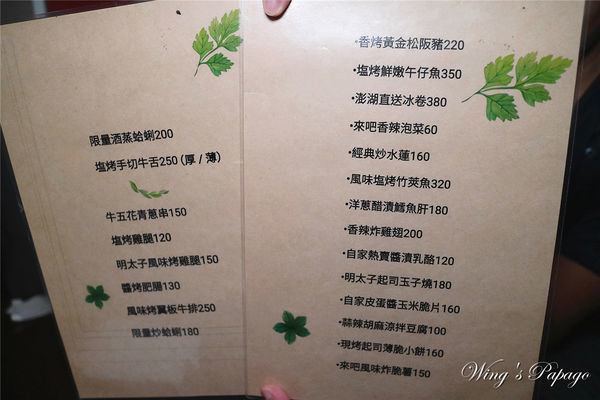 限量酒蒸蛤蜊200
塩烤手切牛舌250 (厚 / 薄)
牛五花青蔥串150
塩烤雞腿120
明太子風味烤雞腿150
醬烤肥腸130
風味烤翼板牛排250
限量炒蛤蜊180
•香烤黃金松阪豬220
•塩烤鮮嫩午仔魚350
•澎湖直送冰卷380
•來吧香辣泡菜60
•經典炒水蓮160
•風味塩烤竹莢魚320
•洋蔥醋漬鱈魚肝180
•香辣炸雞翅200
•自家熱賣醬漬乳酪120
•明太子起司玉子燒180
•自家皮蛋醬玉米脆片160
•蒜辣胡麻涼拌豆腐100
•現烤起司薄脆小餅160
•來吧風味炸脆薯150
Wing's Papago